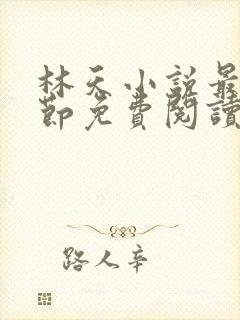 林天小說最
節免費閱讀
路人辛